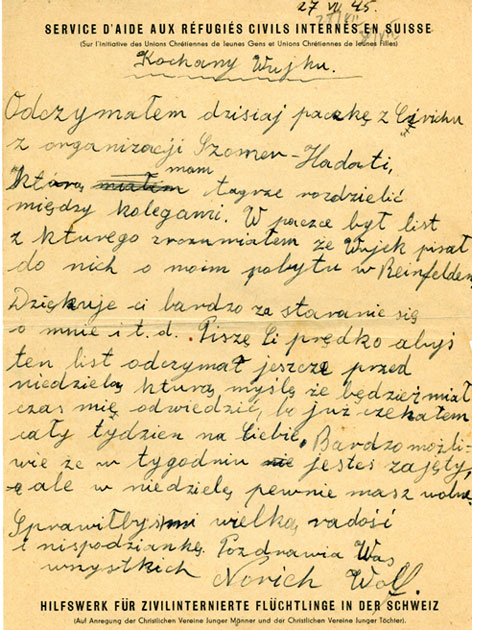 27 VI 45.
SERVICE D'AIDE AUX RÉFUGIÉS CIVILS INTERNÉS EN SUISSE
(Sur l'initiative des Unions Chrétiennes de Jeunes Gens et Unions Chrétiennes de Jeunes Filles)
Kochany Wujku.
Odczymałem dzisiaj paczkę z
z organizacji Szomer-Hadati,
Którą miałem mam tagrze rozdzielić
między kolegami. W paczce był list
z kturego zrozumiałem że Wujek pisał
do nich o moim pobytu w Reinfelden.
Dziękuje ci bardzo za staranie się
o mnie i t. d. Piszę Ci prędko abyś
ten list odczymał jeszcze przed
niedzielą kturą myślę że będziesz miał
czas mię odwiedzić, bo już czekałem
cały tydzien na Ciebie. Bardzo możli-
wie że w tygodniu nie jesteś zajęty,
ale w niedzielę pewnie masz wolne.
Sprawiłbyś mi wielką radość
i nispodziankę. Pozdrawia Was
wszystkich Norich Wolf.
HILFSWERK FÜR ZIVILINTERNIERTE FLÜCHTLINGE IN DER SCHWEIZ
(Auf Anregung der Christlichen Vereine Junger Männer und der Christlichen Vereine Junger Töchter)